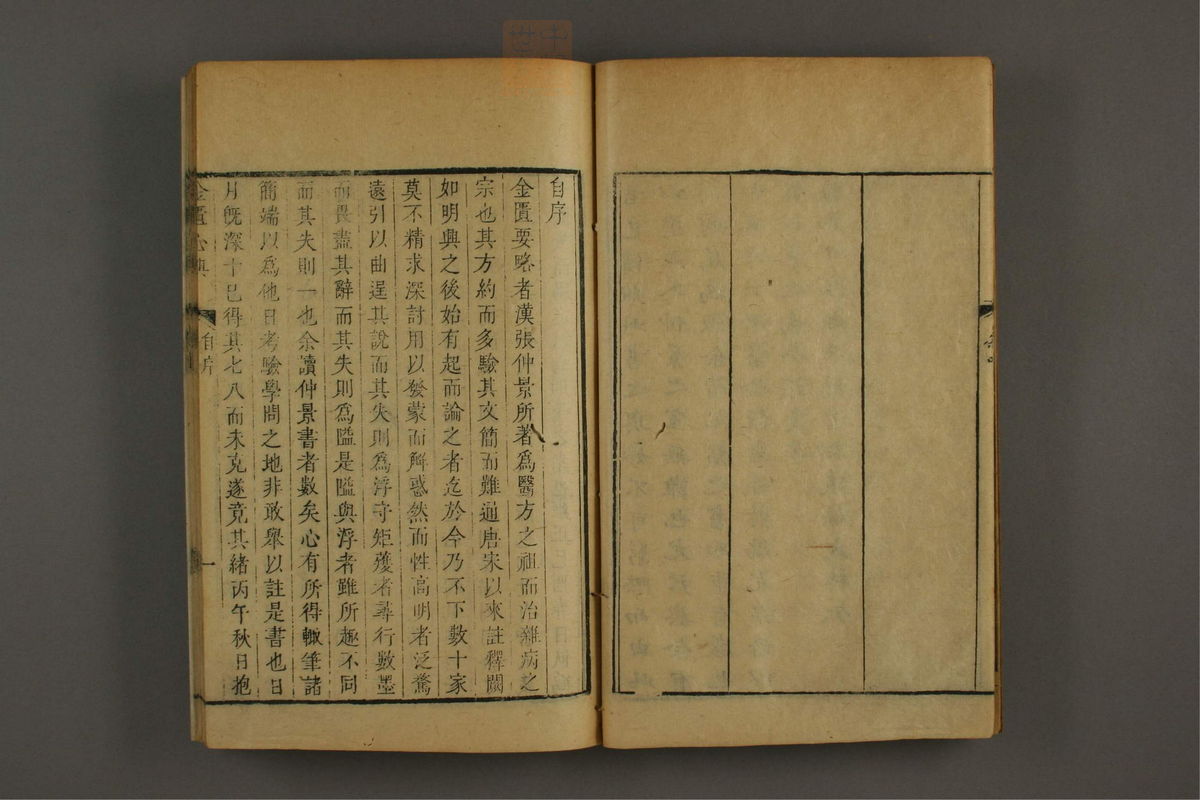 自序
金匱要略者漢張仲景所著爲醫方之祖而治雜病之
宗也其方約而多驗其文簡而難通唐宋以來註釋闕
如明興之後始有起而論之者迄於今乃不下數十家
莫不精求深討用以發蒙而解惑然而性高明者泛騖
遠引以曲逞其說而其失則爲浮守矩矱者尋行數墨
而畏盡其辭而其失則爲隘是隘與浮者雖所趣不同
而其失則一也余讀仲景書者數矣心有所得輒筆諸
簡端以爲他日考驗學問之地非敢舉以註是書也日
月既深十已得其七八而未克遂竟其緒丙午秋日抱
金匱心典
自序
一